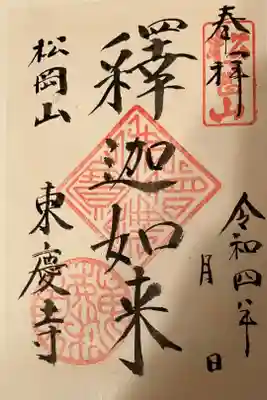 奉拝
松岡山
令和四年
月 日
釋迦如来
松岡山 東慶寺